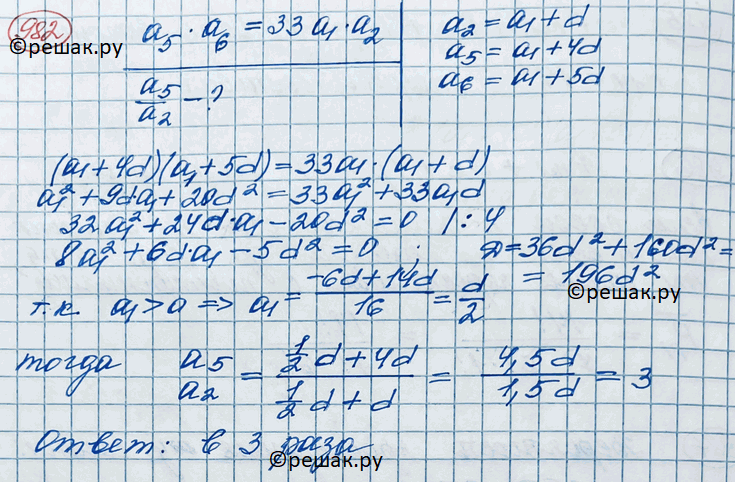 982
©решак.ру
a₅ · a₆ = 33a₁ · a₂
a₅/a₂ – ?
a₂ = a₁ + d
a₅ = a₁ + 4d
a₆ = a₁ + 5d
(a₁ + 4d)(a₁ + 5d) = 33a₁ · (a₁ + d)
a₁² + 9da₁ + 20d² = 33a₁² + 33a₁d
32a₁² + 24d·a₁ – 20d² = 0 | : 4
8a₁² + 6da₁ – 5d² = 0 ; D = 36d² + 160d² =
= 196d²
©решак.ру
т.к. a₁ > 0 => a₁ = (–6d + 14d)/16 = d/2
тогда a₅/a₂ = (1/2 d + 4d)/(1/2 d + d) = 4,5d/1,5d = 3
Ответ: в 3 раза
©решак.ру